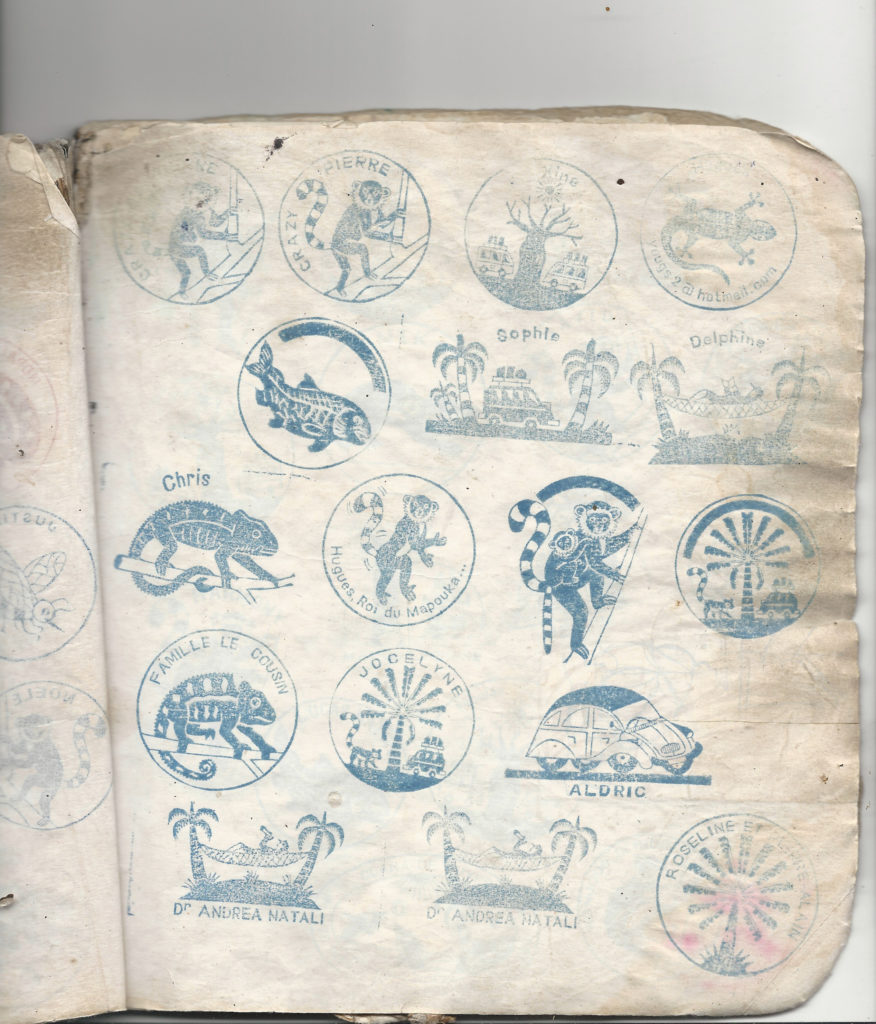 CRAZY PIERRE
@hotmail.com
Sophie
Delphine
Chris
Hugues, Roi du Mapouka...
FAMILLE LE COUSIN
JOCELYNE
ALDRIC
Dr ANDREA NATALI
Dr ANDREA NATALI
ROSELINE ET
ALAIN